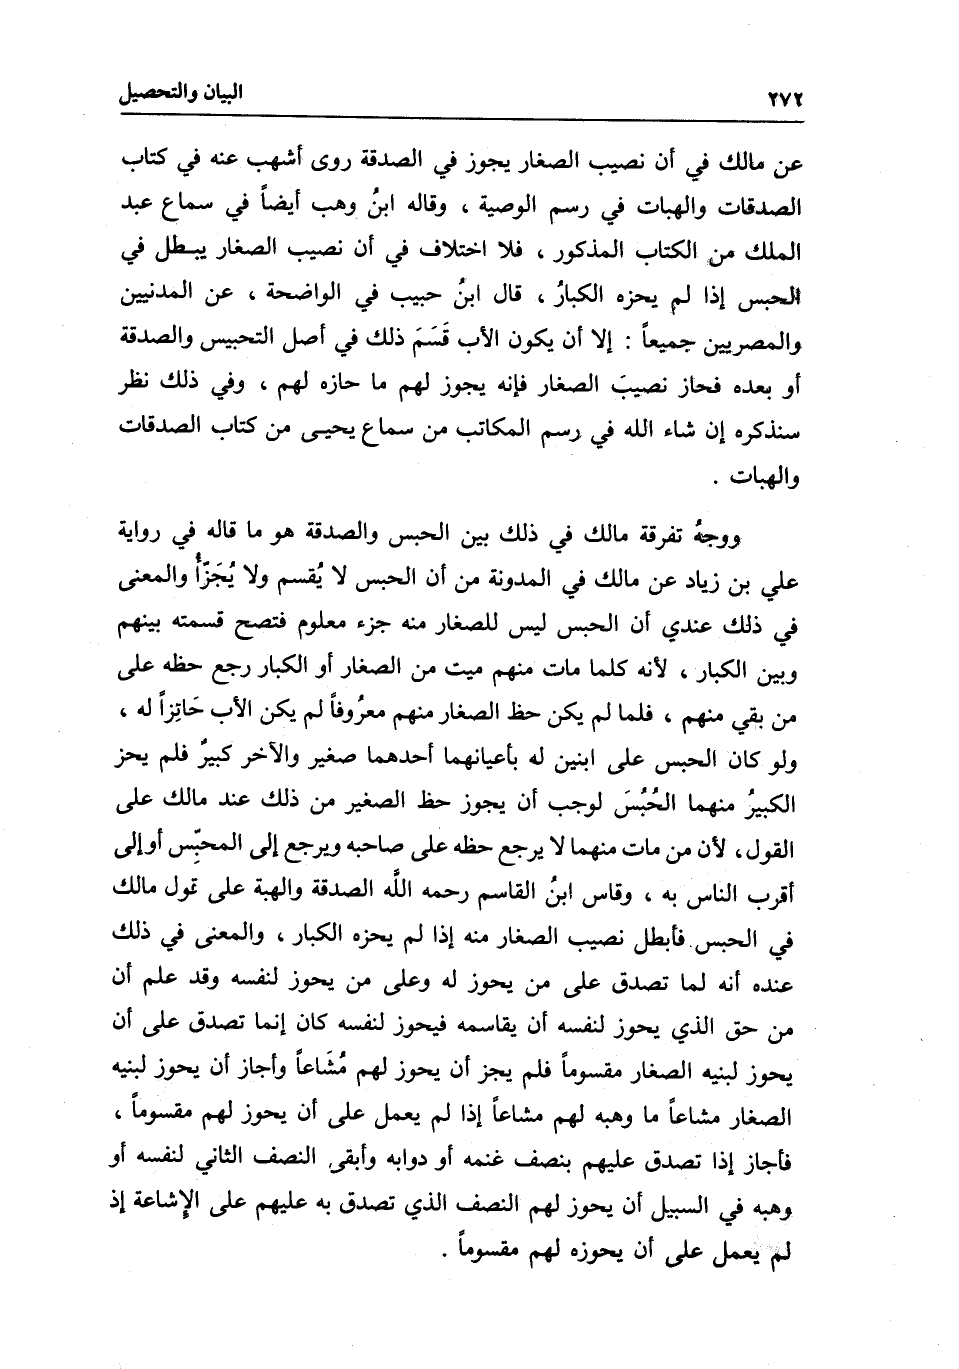 ٢٧٢ البيان والتحصيل
عن مالك في أن نصيب الصغار يجوز في الصدقة روى أشهب عنه في كتاب
الصدقات والهبات في رسم الوصية ، وقاله ابنُ وهب أيضاً في سماع عبد
الملك من الكتاب المذكور ، فلا اختلاف في أن نصيب الصغار يبطل في
الحبس إذا لم يحزه الكبارُ ، قال ابنُ حبيب في الواضحة ، عن المدنيين
والمصريين جميعاً : إلا أن يكون الأب قَسَمَ ذلك في أصل التحبيس والصدقة
أو بعده فحاز نصيبَ الصغار فإنه يجوز لهم ما حازه لهم ، وفي ذلك نظر
سنذكره إن شاء الله في رسم المكاتب من سماع يحيى من كتاب الصدقات
والهبات .
ووجهُ تفرقة مالك في ذلك بين الحبس والصدقة هو ما قاله في رواية
علي بن زياد عن مالك في المدونة من أن الحبس لا يُقسم ولا يُجَزّأُ والمعنى
في ذلك عندي أن الحبس ليس للصغار منه جزء معلوم فتصح قسمته بينهم
وبين الكبار ، لأنه كلما مات منهم ميت من الصغار أو الكبار رجع حظه على
من بقي منهم ، فلما لم يكن حظ الصغار منهم معرُوفاً لم يكن الأب حَائِزاً له ،
ولو كان الحبس على ابنين له بأعيانهما أحدهما صغير والآخر كبيرٌ فلم يحز
الكبيرُ منهما الحُبُسَ لوجب أن يجوز حظ الصغير من ذلك عند مالك على
القول، لأن من مات منهما لا يرجع حظه على صاحبه ويرجع إلى المحبِّس أو إلى
أقرب الناس به ، وقاس ابنُ القاسم رحمه اللَّه الصدقة والهبة على قول مالك
في الحبس فأبطل نصيب الصغار منه إذا لم يحزه الكبار ، والمعنى في ذلك
عنده أنه لما تصدق على من يحوز له وعلى من يحوز لنفسه وقد علم أن
من حق الذي يحوز لنفسه أن يقاسمه فيحوز لنفسه كان إنما تصدق على أن
يحوز لبنيه الصغار مقسوماً فلم يجز أن يحوز لهم مُشَاعاً وأجاز أن يحوز لبنيه
الصغار مشاعاً ما وهبه لهم مشاعاً إذا لم يعمل على أن يحوز لهم مقسوماً ،
فأجاز إذا تصدق عليهم بنصف غنمه أو دوابه وأبقى النصف الثاني لنفسه أو
وهبه في السبيل أن يحوز لهم النصف الذي تصدق به عليهم على الإشاعة إذ
لم يعمل على أن يحوزه لهم مقسوماً .